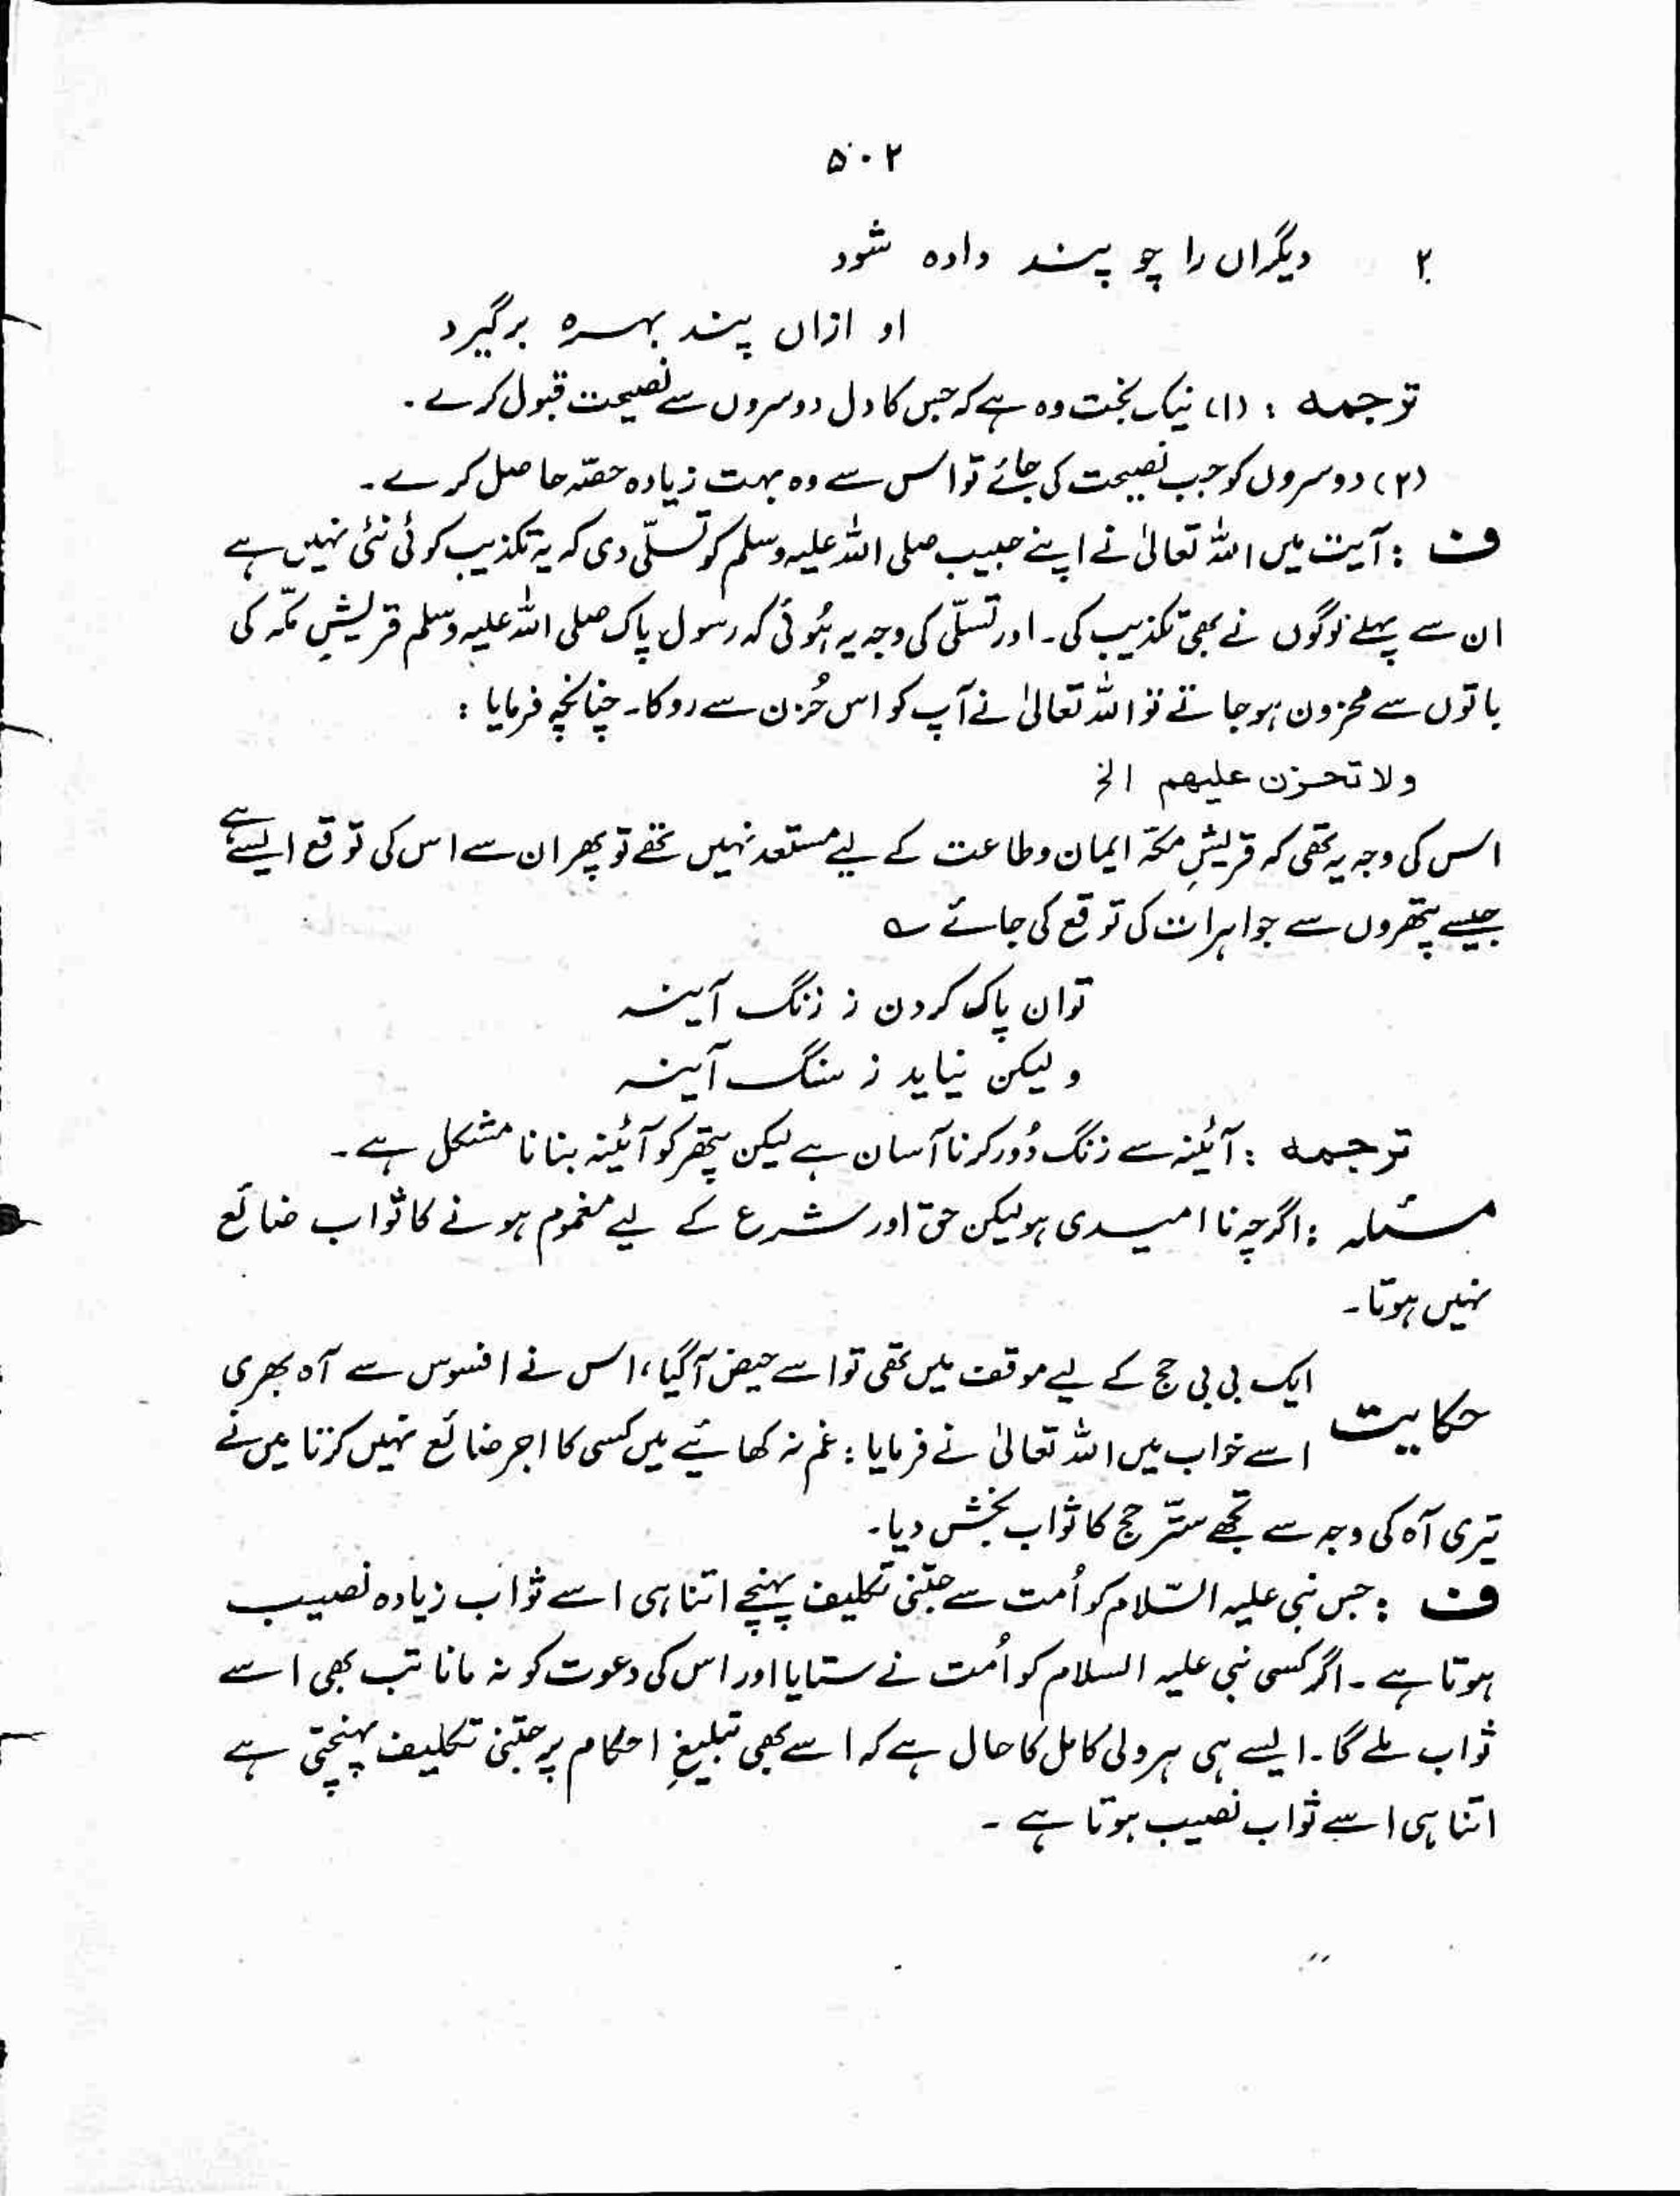 ۵۰۲
۲ دیگراں را چو پند داده شود
او ازاں پند بہرہ برگیرد
ترجمہ : (۱) نیک بخت وہ ہے کہ جس کا دل دوسروں سے نصیحت قبول کرے ۔
(۲) دوسروں کو جب نصیحت کی جائے تو اس سے وہ بہت زیادہ حصّہ حاصل کرے ۔
ف : آیت میں اللہ تعالیٰ نے اپنے حبیب صلی اللہ علیہ وسلم کو تسلّی دی کہ یہ تکذیب کوئی نئی نہیں ہے
ان سے پہلے لوگوں نے بھی تکذیب کی ۔ اور تسلّی کی وجہ یہ ہُوئی کہ رسول پاک صلی اللہ علیہ وسلم قریشِ مکّہ کی
باتوں سے محزون ہو جاتے تو اللہ تعالیٰ نے آپ کو اس حُزن سے روکا ۔ چنانچہ فرمایا :
ولا تحزن علیھم الخ
اس کی وجہ یہ تھی کہ قریشِ مکّہ ایمان و طاعت کے لیے مستعد نہیں تھے تو پھر ان سے اس کی توقع ایسے ہے
جیسے پتھروں سے جواہرات کی توقع کی جائے ؎
تواں پاک کردن ز زنگ آینہ
و لیکن نیاید ز سنگ آینہ
ترجمہ : آئینہ سے زنگ دُور کرنا آسان ہے لیکن پتھر کو آئینہ بنانا مشکل ہے ۔
مسئلہ : اگرچہ نا امیدی ہو لیکن حق اور شرع کے لیے مغموم ہونے کا ثواب ضائع
نہیں ہوتا ۔
حکایت ایک بی بی حج کے لیے موقف میں تھی تو اسے حیض آگیا ، اس نے افسوس سے آہ بھری
اسے خواب میں اللہ تعالیٰ نے فرمایا : غم نہ کھائیے میں کسی کا اجر ضائع نہیں کرتا میں نے
تیری آہ کی وجہ سے تجھے ستّر حج کا ثواب بخش دیا ۔
ف : جس نبی علیہ السّلام کو اُمت سے جتنی تکلیف پہنچے اتنا ہی اسے ثواب زیادہ نصیب
ہوتا ہے ۔ اگر کسی نبی علیہ السلام کو اُمت نے ستایا اور اس کی دعوت کو نہ مانا تب بھی اسے
ثواب ملے گا ۔ ایسے ہی ہر ولی کامل کا حال ہے کہ اسے بھی تبلیغِ احکام پر جتنی تکلیف پہنچتی ہے
اتنا ہی اسے ثواب نصیب ہوتا ہے ۔